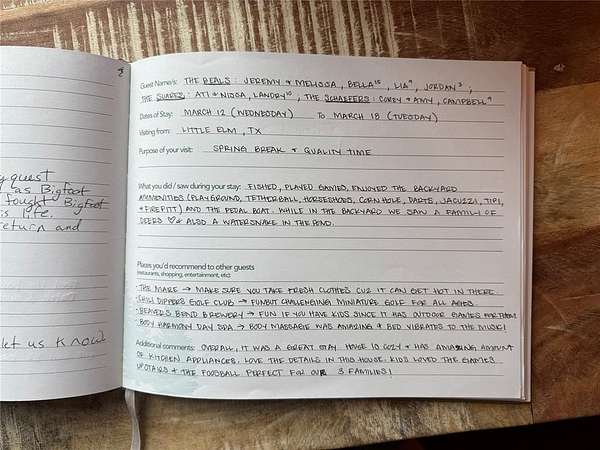 y guest
as Bigfoot
fought Bigfoot
is life.
return and
let us know
Guest Name/s: THE BEALS: JEREMY & MELISSA, BELLA 15, LIA 9, JORDAN 3;
THE SUAREZ: ATI & NISSA, LANDRY 10, THE SCHAEFERS: COREY & AMY, CAMPBELL 9
Dates of Stay: MARCH 12 (WEDNESDAY) To MARCH 18 (TUESDAY)
Visiting from: LITTLE ELM, TX
Purpose of your visit: SPRING BREAK & QUALITY TIME
What you did / saw during your stay: FISHED, PLAYED GAMES, ENJOYED THE BACKYARD
AMMENITIES (PLAYGROUND, TETHERBALL, HORSESHOES, CORN HOLE, DARTS, JACUZZI, TIPI,
& FIREPIT) AND THE PEDAL BOAT. WHILE IN THE BACKYARD WE SAW A FAMILY OF
DEERS ♡ & ALSO A WATERSNAKE IN THE POND.
Places you'd recommend to other guests
(restaurants, shopping, entertainment, etc):
· THE MARE → MAKE SURE YOU TAKE FRESH CLOTHES CUZ IT CAN GET HOT IN THERE
· CHILI DIPPERS GOLF CLUB → FUN BUT CHALLENGING MINIATURE GOLF FOR ALL AGES
· BEAVERS BEND BREWERY → FUN IF YOU HAVE KIDS SINCE IT HAS OUTDOOR GAMES FOR THEM!
· BODY HARMONY DAY SPA → BODY MASSAGE WAS AMAZING & BED VIBRATES TO THE MUSIC!
Additional comments: OVERALL, IT WAS A GREAT STAY. HOUSE IS COZY & HAS AMAZING AMOUNT
OF KITCHEN APPLIANCES. LOVE THE DETAILS IN THIS HOUSE. KIDS LOVED THE GAMES
UPSTAIRS & THE FOOSBALL. PERFECT FOR OUR 3 FAMILIES!